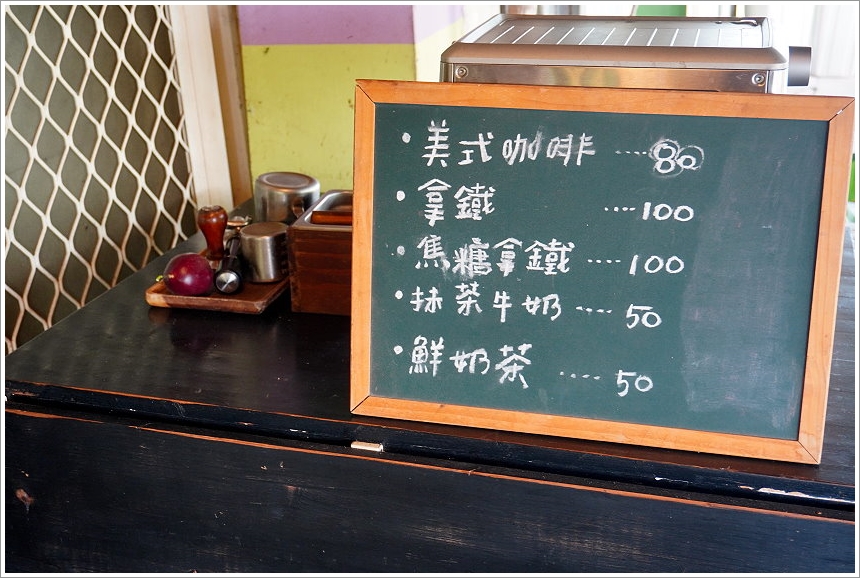 •美式咖啡 ....80
•拿鐵 ....100
•焦糖拿鐵 ....100
•抹茶牛奶 .... 50
•鮮奶茶 ..... 50